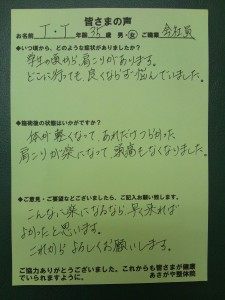 皆さまの声
お名前 T.T 年齢 35 歳 男・女 ご職業 会社員
◆いつ頃から、どのような症状がありましたか?
学生の頃から、肩こりがあります。
どこに行っても良くならず悩んでいました。
◆施術後の状態はいかがですか?
体が軽くなって、あれだけつらかった
肩こりが楽になって、頭痛もなくなりました。
◆ご意見・ご要望などございましたら、ご記入お願い致します。
こんなに楽になるなら、早く来れば
よかったと思います。
これからもよろしくお願いします。
ご協力ありがとうございました。これからも皆さまが健康
でいられますように。 あさがや整体院